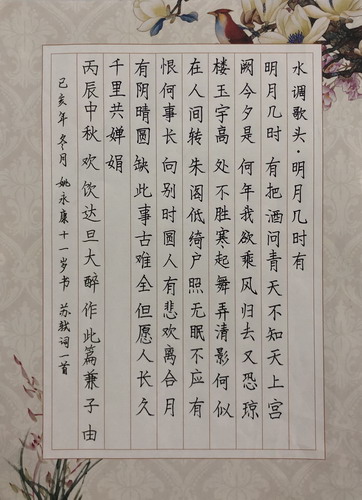 水调歌头·明月几时有
明月几时有把酒问青天不知天上宫
阙今夕是何年我欲乘风归去又恐琼
楼玉宇高处不胜寒起舞弄清影何似
在人间转朱阁低绮户照无眠不应有
恨何事长向别时圆人有悲欢离合月
有阴晴圆缺此事古难全但愿人长久
千里共婵娟
丙辰中秋欢饮达旦大醉作此篇兼子由
己亥年冬月 姚永康十一岁书 苏轼词一首